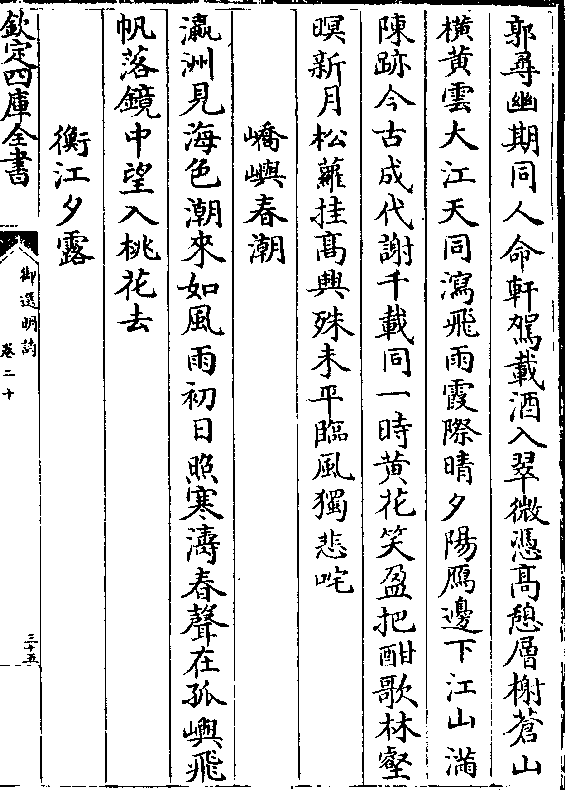 郭尋幽期同人命軒駕載酒入翠微憑髙憩層榭蒼山
橫黄雲大江天同瀉飛雨霞際晴夕陽鴈邊下江山滿
陳跡今古成代謝千載同一時黄花笑盈把酣歌林壑
暝新月松蘿挂髙興殊未平臨風獨悲咤
嶠嶼春潮
瀛洲見海色潮來如風雨初日照寒濤春聲在孤嶼飛
帆落鏡中望入桃花去
衡江夕露
欽定四庫全書
御選明詩
卷二十
三十五